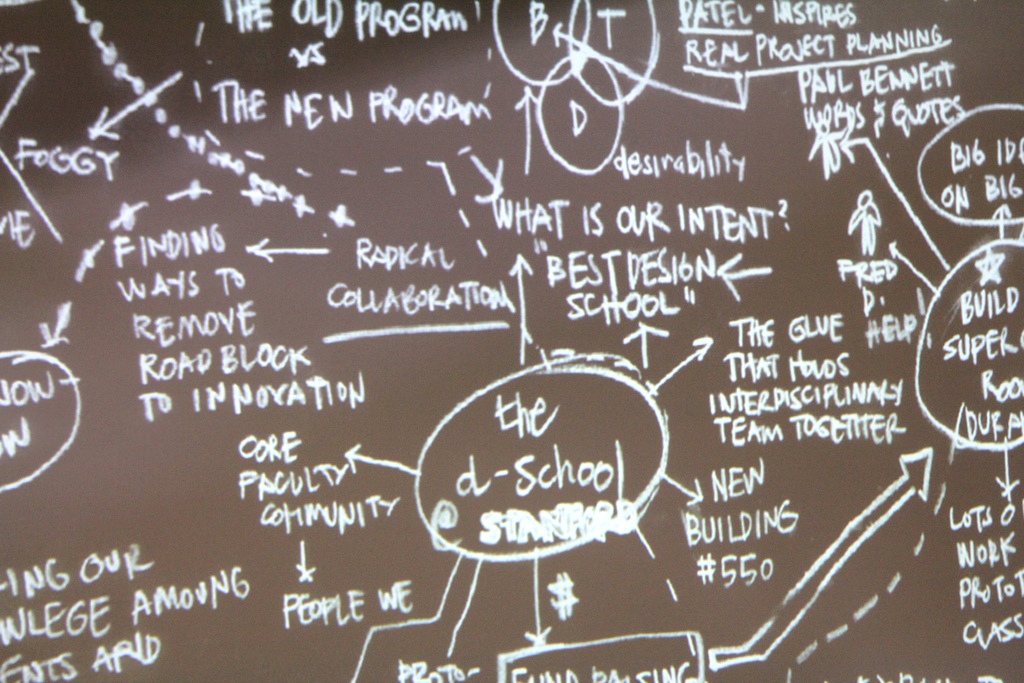 THE OLD PROGRAM
VS
THE NEW PROGRAM
FOGGY
B T
D
desirability
PATEL - INSPIRES
REAL PROJECT PLANNING
PAUL BENNETT
WORDS & QUOTES
BIG
ON BIG
WHAT IS OUR INTENT?
"BEST DESIGN
SCHOOL"
FINDING
WAYS TO
REMOVE
ROAD BLOCK
TO INNOVATION
RADICAL
COLLABORATION
FRED
D.
HELP
BUILD
SUPER
THE GLUE
THAT HOLDS
INTERDISCIPLINARY
TEAM TOGETHER
the
d-school
@ STANFORD
CORE
FACULTY
COMMUNITY
PEOPLE WE
NEW
BUILDING
#550
$
FUND RAISING
PROTO-
LOTS O
WORK
PROTOT
CLASS
-ING OUR
WLEGE AMOUNG
ENTS AND